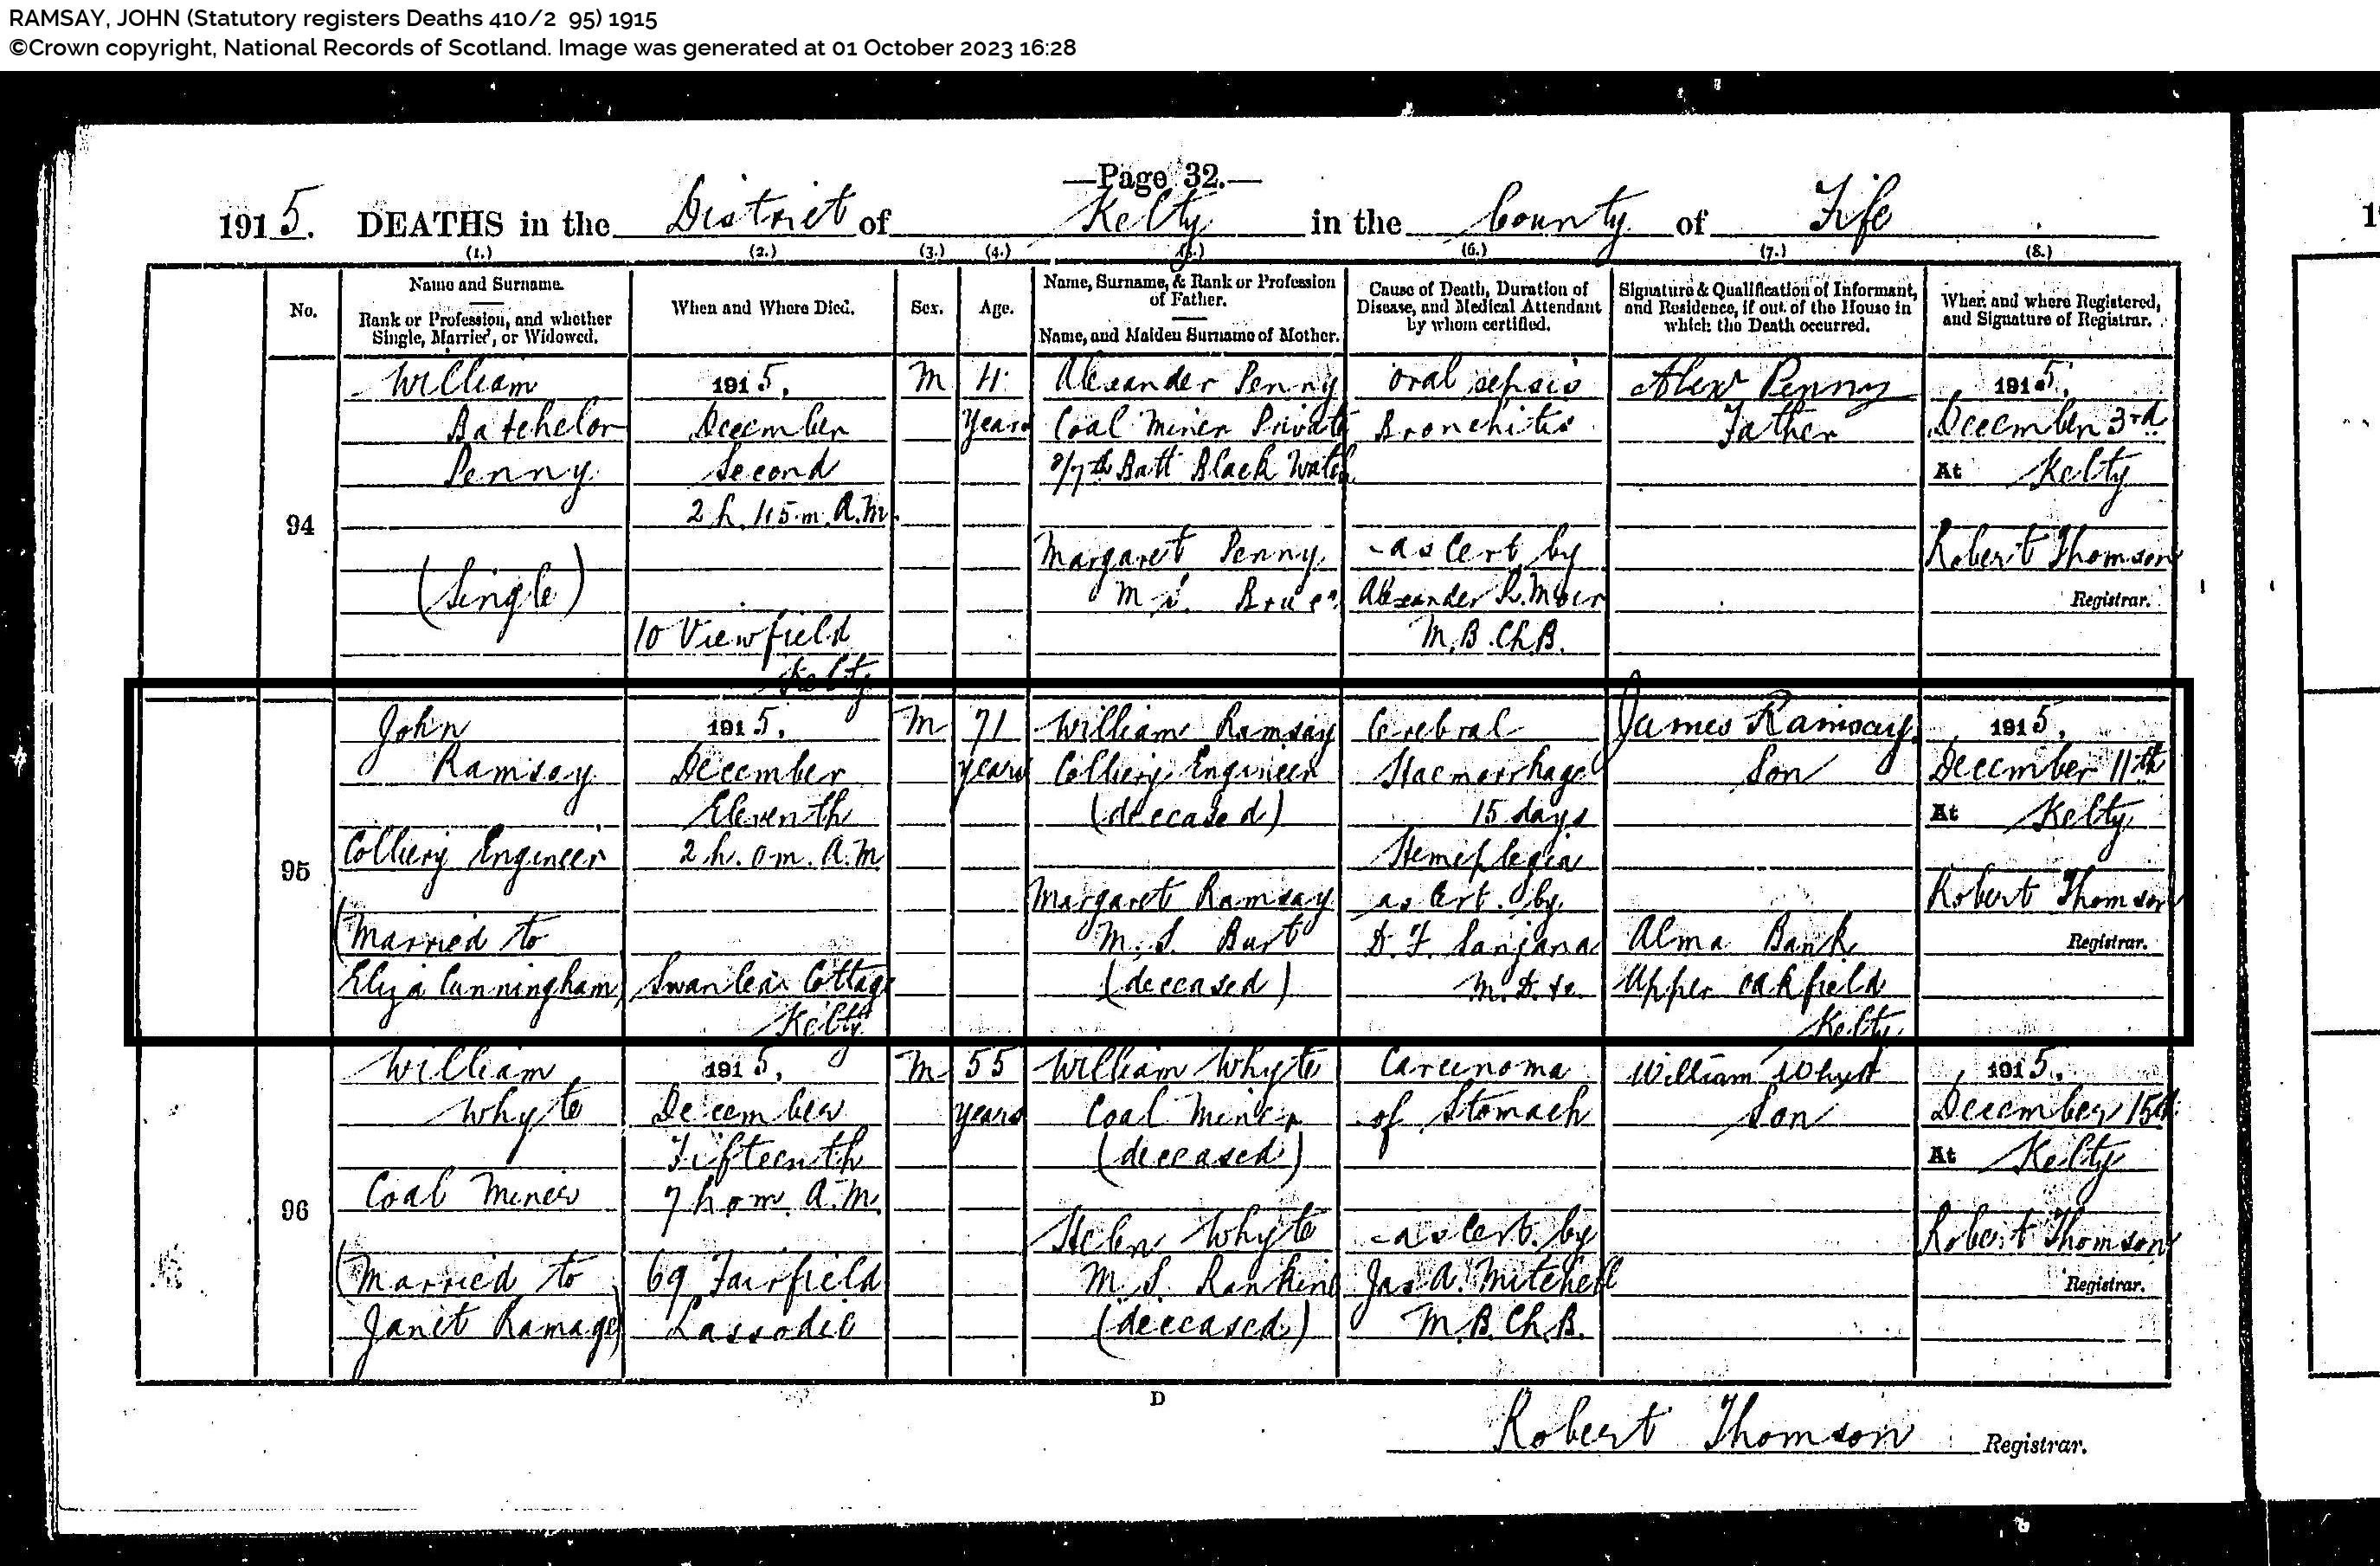 RAMSAY, JOHN (Statutory registers Deaths 410/2 95) 1915
©Crown copyright, National Records of Scotland. Image was generated at 01 October 2023 16:28
—Page 32.—
1915. DEATHS in the District of Kelty in the County of Fife
(1.) (2.) (3.) (4.) (5.) (6.) (7.) (8.)
No.
Name and Surname.
Rank or Profession, and whether
Single, Married, or Widowed.
When and Where Died.
Sex.
Age.
Name, Surname, & Rank or Profession
of Father.
Name, and Maiden Surname of Mother.
Cause of Death, Duration of
Disease, and Medical Attendant
by whom certified.
Signature & Qualification of Informant,
and Residence, if out of the House in
which the Death occurred.
When and where Registered,
and Signature of Registrar.
94
William
Batchelor
Penny
(Single)
1915.
December
Second
2 h. 15 m. A.M.
10 Viewfield
Kelty
M
Years
Alexander Penny
Coal Miner Private
7th Batt Black Watch
Margaret Penny
M.S. Bruce
oral sepsis
Bronchitis
as Cert by
Alexander R. Muir
M.B. Ch.B.
Alexr Penny
Father
1915.
December 3rd
At Kelty
Robert Thomson
Registrar.
95
John
Ramsay
Colliery Engineer
(Married to
Eliza Cunningham)
1915.
December
Eleventh
2 h. 0 m. A.M
Swanlea Cottage
Kelty
M
71
years
William Ramsay
Colliery Engineer
(deceased)
Margaret Ramsay
M.S. Burt
(deceased)
Cerebral
Haemorrhage
15 days
Hemeplegia
as Cert. by
D. F. Sanjana
M.D. &c.
James Ramsay
Son
Alma Bank
Upper Oakfield
Kelty
1915.
December 11th
At Kelty
Robert Thomson
Registrar.
96
William
Whyte
Coal Miner
(Married to
Janet Ramage)
1915.
December
Fifteenth
7 h 0 m. A.M.
69 Fairfield
Lassodie
M
55
years
William Whyte
Coal Miner
(deceased)
Helen Whyte
M.S. Rankine
(deceased)
Carcinoma
of Stomach
as Cert. by
Jas A. Mitchell
M.B. Ch.B.
William Whyte
Son
1915.
December 15th
At Kelty
Robert Thomson
Registrar.
D
Robert Thomson Registrar.